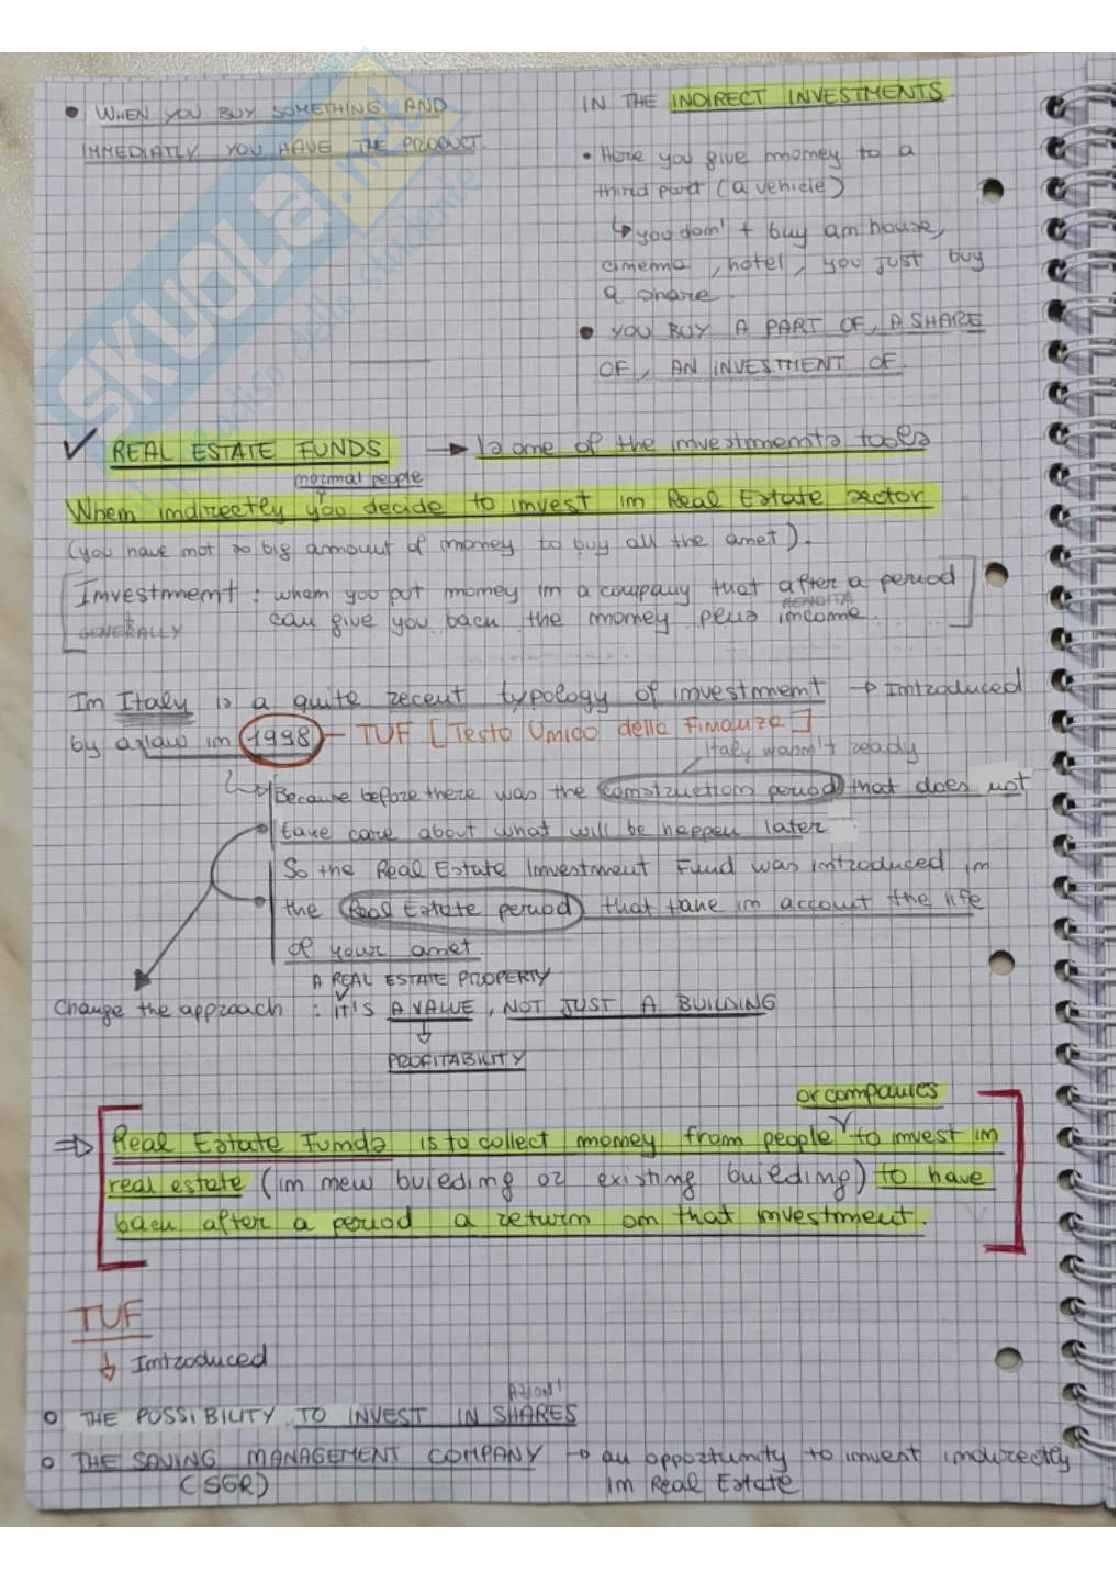 • WHEN YOU BUY SOMETHING AND
IMMEDIATLY YOU HAVE THE PRODUCT.
IN THE INDIRECT INVESTMENTS
• Here you give money to a
third part (a vehicle)
↳ you don't buy an house,
cinema, hotel, you just buy
a share.
• YOU BUY A PART OF, A SHARE
OF, AN INVESTMENT OF.
✓ REAL ESTATE FUNDS → Is one of the investments tools
normal people
When indirectly you decide to invest in Real Estate sector
(you have not so big amount of money to buy all the asset).
Investment: when you put money in a company that after a period
GENERALLY can give you back the money plus income.
RENDITA
In Italy is a quite recent typology of investment → Introduced
by a law in 1998 - TUF [Testo Unico della Finanza]
Italy wasn't ready
↳ Because before there was the construction period that does not
take care about what will be happen later
So the Real Estate Investment Fund was introduced in
the Real Estate period that take in account the life
of your asset
A REAL ESTATE PROPERTY
Change the approach : IT'S A VALUE, NOT JUST A BUILDING
↓
PROFITABILITY
or companies
⇒ Real Estate Funds is to collect money from people to invest in
real estate (in new building or existing building) to have
back after a period a return on that investment.
TUF
↓ Introduced
Azioni
○ THE POSSIBILITY TO INVEST IN SHARES
○ THE SAVING MANAGEMENT COMPANY → an opportunity to invest indirectly
(SGR) in Real Estate
SKUOLA.net